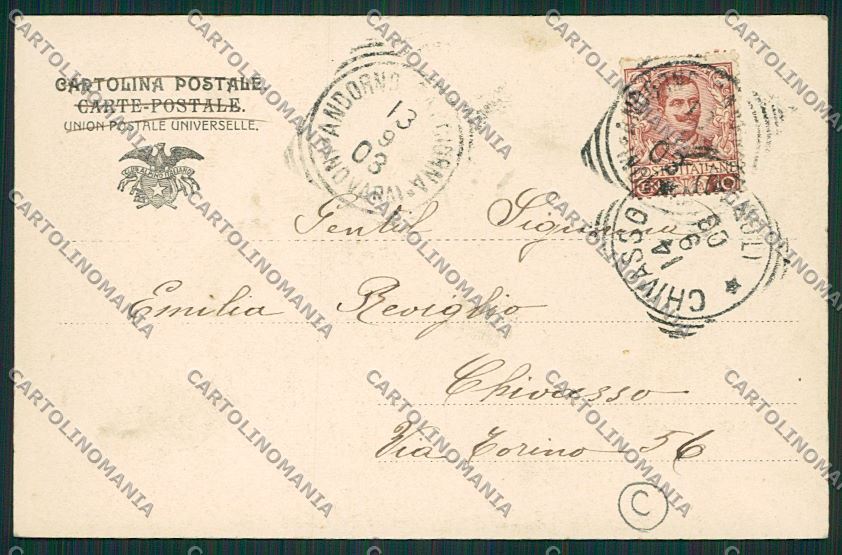 CARTOLINA POSTALE.
CARTE-POSTALE.
UNION POSTALE UNIVERSELLE.
ANDORNO
13
9
03
POSTE ITALIANE
CHIVASSO
14
9
03
Gentil Signorina
Emilia Reviglio
Chivasso
Via Torino 56
C
CARTOLINOMANIA